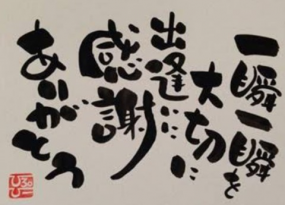 一瞬一瞬を
大切に
出逢いに
感謝
ありがとう